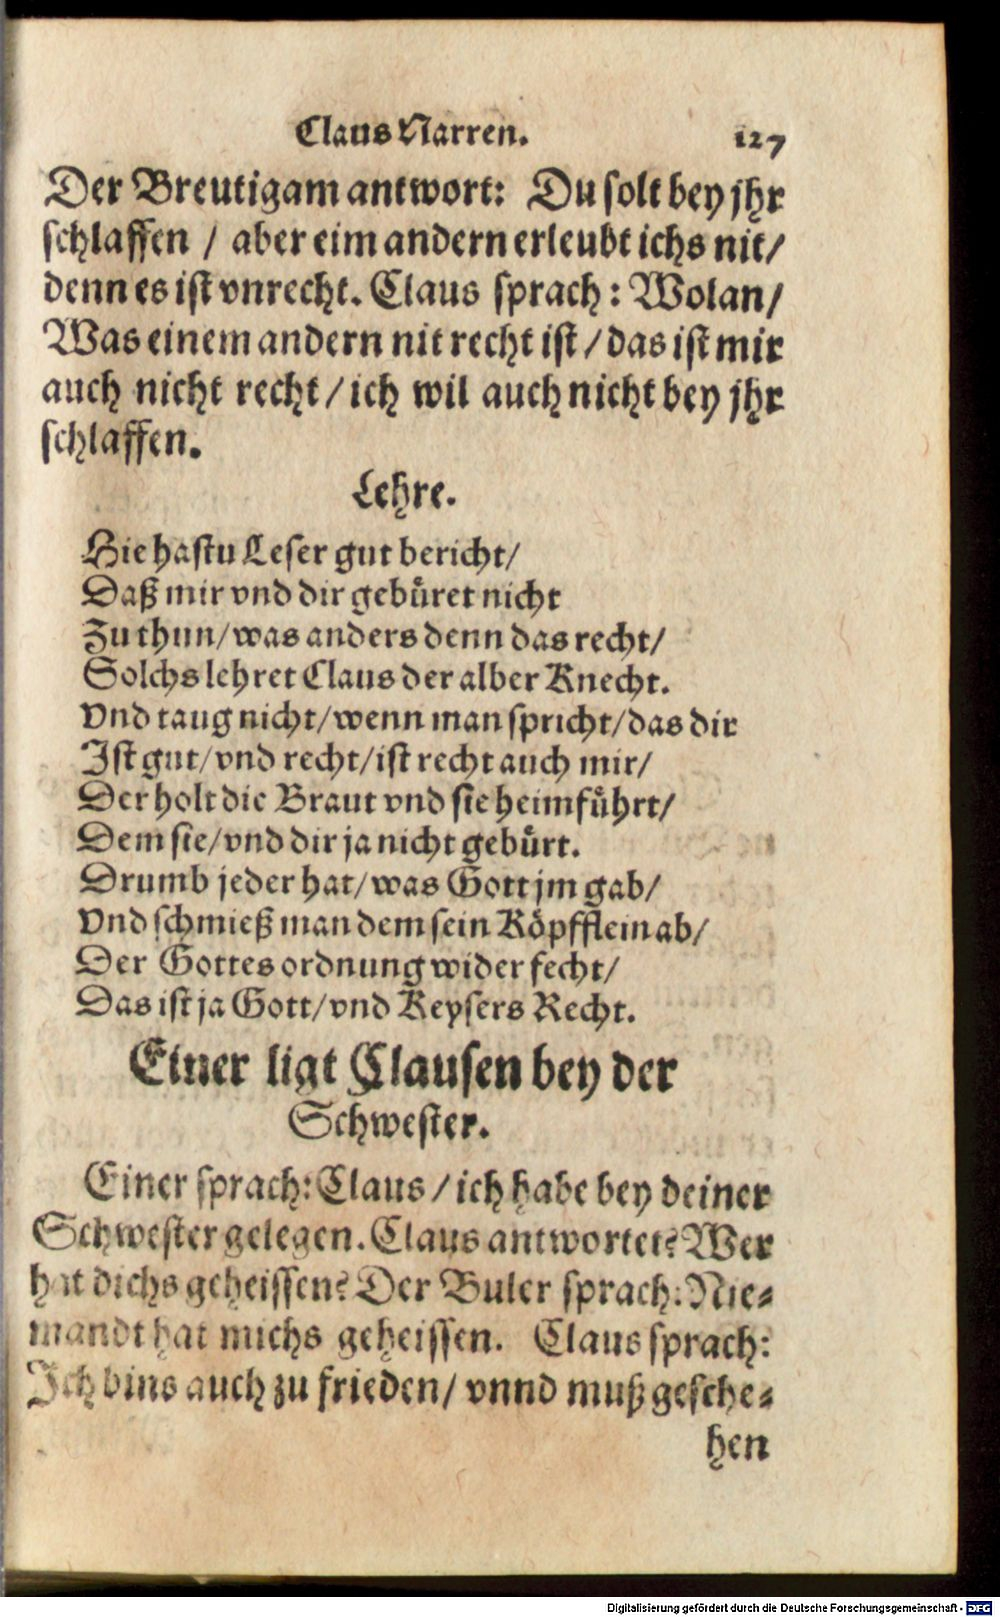 Claus Narren. 127
Der Breutigam antwort: Du solt bey jhr
schlaffen / aber eim andern erleubt ichs nit/
denn es ist vnrecht. Claus sprach: Wolan/
Was einem andern nit recht ist / das ist mir
auch nicht recht / ich wil auch nicht bey jhr
schlaffen.
Lehre.
Hie hastu Leser gut bericht/
Daß mir vnd dir gebüret nicht
Zu thun/ was anders denn das recht/
Solchs lehret Claus der alber Knecht.
Vnd taug nicht/ wenn man spricht/ das dir
Ist gut/ vnd recht/ ist recht auch mir/
Der holt die Braut vnd sie heimführt/
Dem sie/ vnd dir ja nicht gebürt.
Drumb jeder hat/ was Gott jm gab/
Vnd schmieß man dem sein Köpfflein ab/
Der Gottes ordnung wider fecht/
Das ist ja Gott/ vnd Keysers Recht.
Einer ligt Clausen bey der
Schwester.
Einer sprach: Claus / ich habe bey deiner
Schwester gelegen. Claus antwortet? Wer
hat dichs geheissen? Der Buler sprach: Nie-
mandt hat michs geheissen. Claus sprach:
Ich bins auch zu frieden/ vnnd muß gesche-
hen
Digitalisierung gefördert durch die Deutsche Forschungsgemeinschaft - DFG